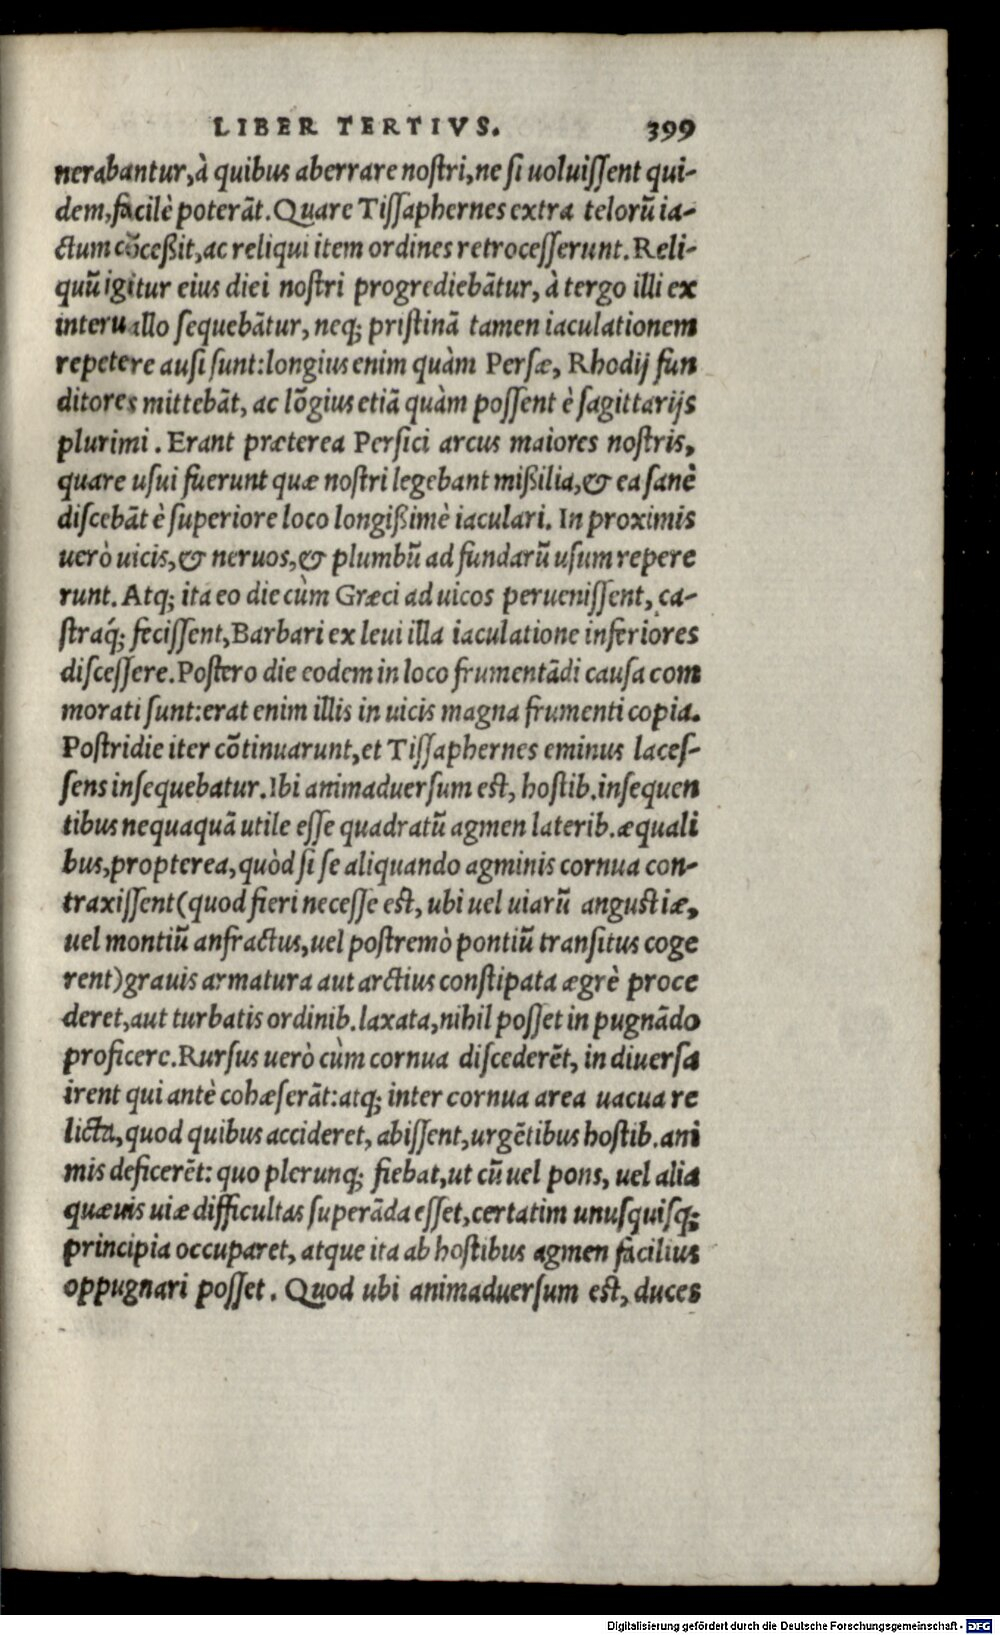 LIBER TERTIVS. 399
nerabantur, à quibus aberrare noſtri, ne ſi uoluiſſent qui-
dem, facilè poterāt. Quare Tiſſaphernes extra telorū ia-
ctum cōceßit, ac reliqui item ordines retroceſſerunt. Reli-
quū igitur eius diei noſtri progrediebātur, à tergo illi ex
interuallo ſequebātur, neq; priſtinā tamen iaculationem
repetere auſi ſunt: longius enim quàm Perſæ, Rhodij fun
ditores mittebāt, ac lōgius etiā quàm poſſent è ſagittarijs
plurimi. Erant præterea Perſici arcus maiores noſtris,
quare uſui fuerunt quæ noſtri legebant mißilia, & ea ſanè
diſcebāt è ſuperiore loco longißimè iaculari. In proximis
uerò uicis, & neruos, & plumbū ad fundarū uſum repere
runt. Atq; ita eo die cùm Græci ad uicos perueniſſent, ca-
ſtraq́; feciſſent, Barbari ex leui illa iaculatione inferiores
diſceſſere. Poſtero die eodem in loco frumentādi cauſa com
morati ſunt: erat enim illis in uicis magna frumenti copia.
Poſtridie iter cōtinuarunt, et Tiſſaphernes eminus laceſ-
ſens inſequebatur. Ibi animaduerſum eſt, hoſtib. inſequen
tibus nequaquā utile eſſe quadratū agmen laterib. æquali
bus, propterea, quòd ſi ſe aliquando agminis cornua con-
traxiſſent (quod fieri neceſſe eſt, ubi uel uiarū anguſtiæ,
uel montiū anfractus, uel poſtremò pontiū tranſitus coge
rent) grauis armatura aut arctius conſtipata ægrè proce
deret, aut turbatis ordinib. laxata, nihil poſſet in pugnādo
proficere. Rurſus uerò cùm cornua diſcederēt, in diuerſa
irent qui antè cohæſerāt: atq; inter cornua area uacua re
licta, quod quibus accideret, abiſſent, urgētibus hoſtib. ani
mis deficerēt: quo plerunq; fiebat, ut cū uel pons, uel alia
quæuis uiæ difficultas ſuperāda eſſet, certatim unuſquiſq;
principia occuparet, atque ita ab hoſtibus agmen facilius
oppugnari poſſet. Quod ubi animaduerſum eſt, duces
Digitalisierung gefördert durch die Deutsche Forschungsgemeinschaft - DFG